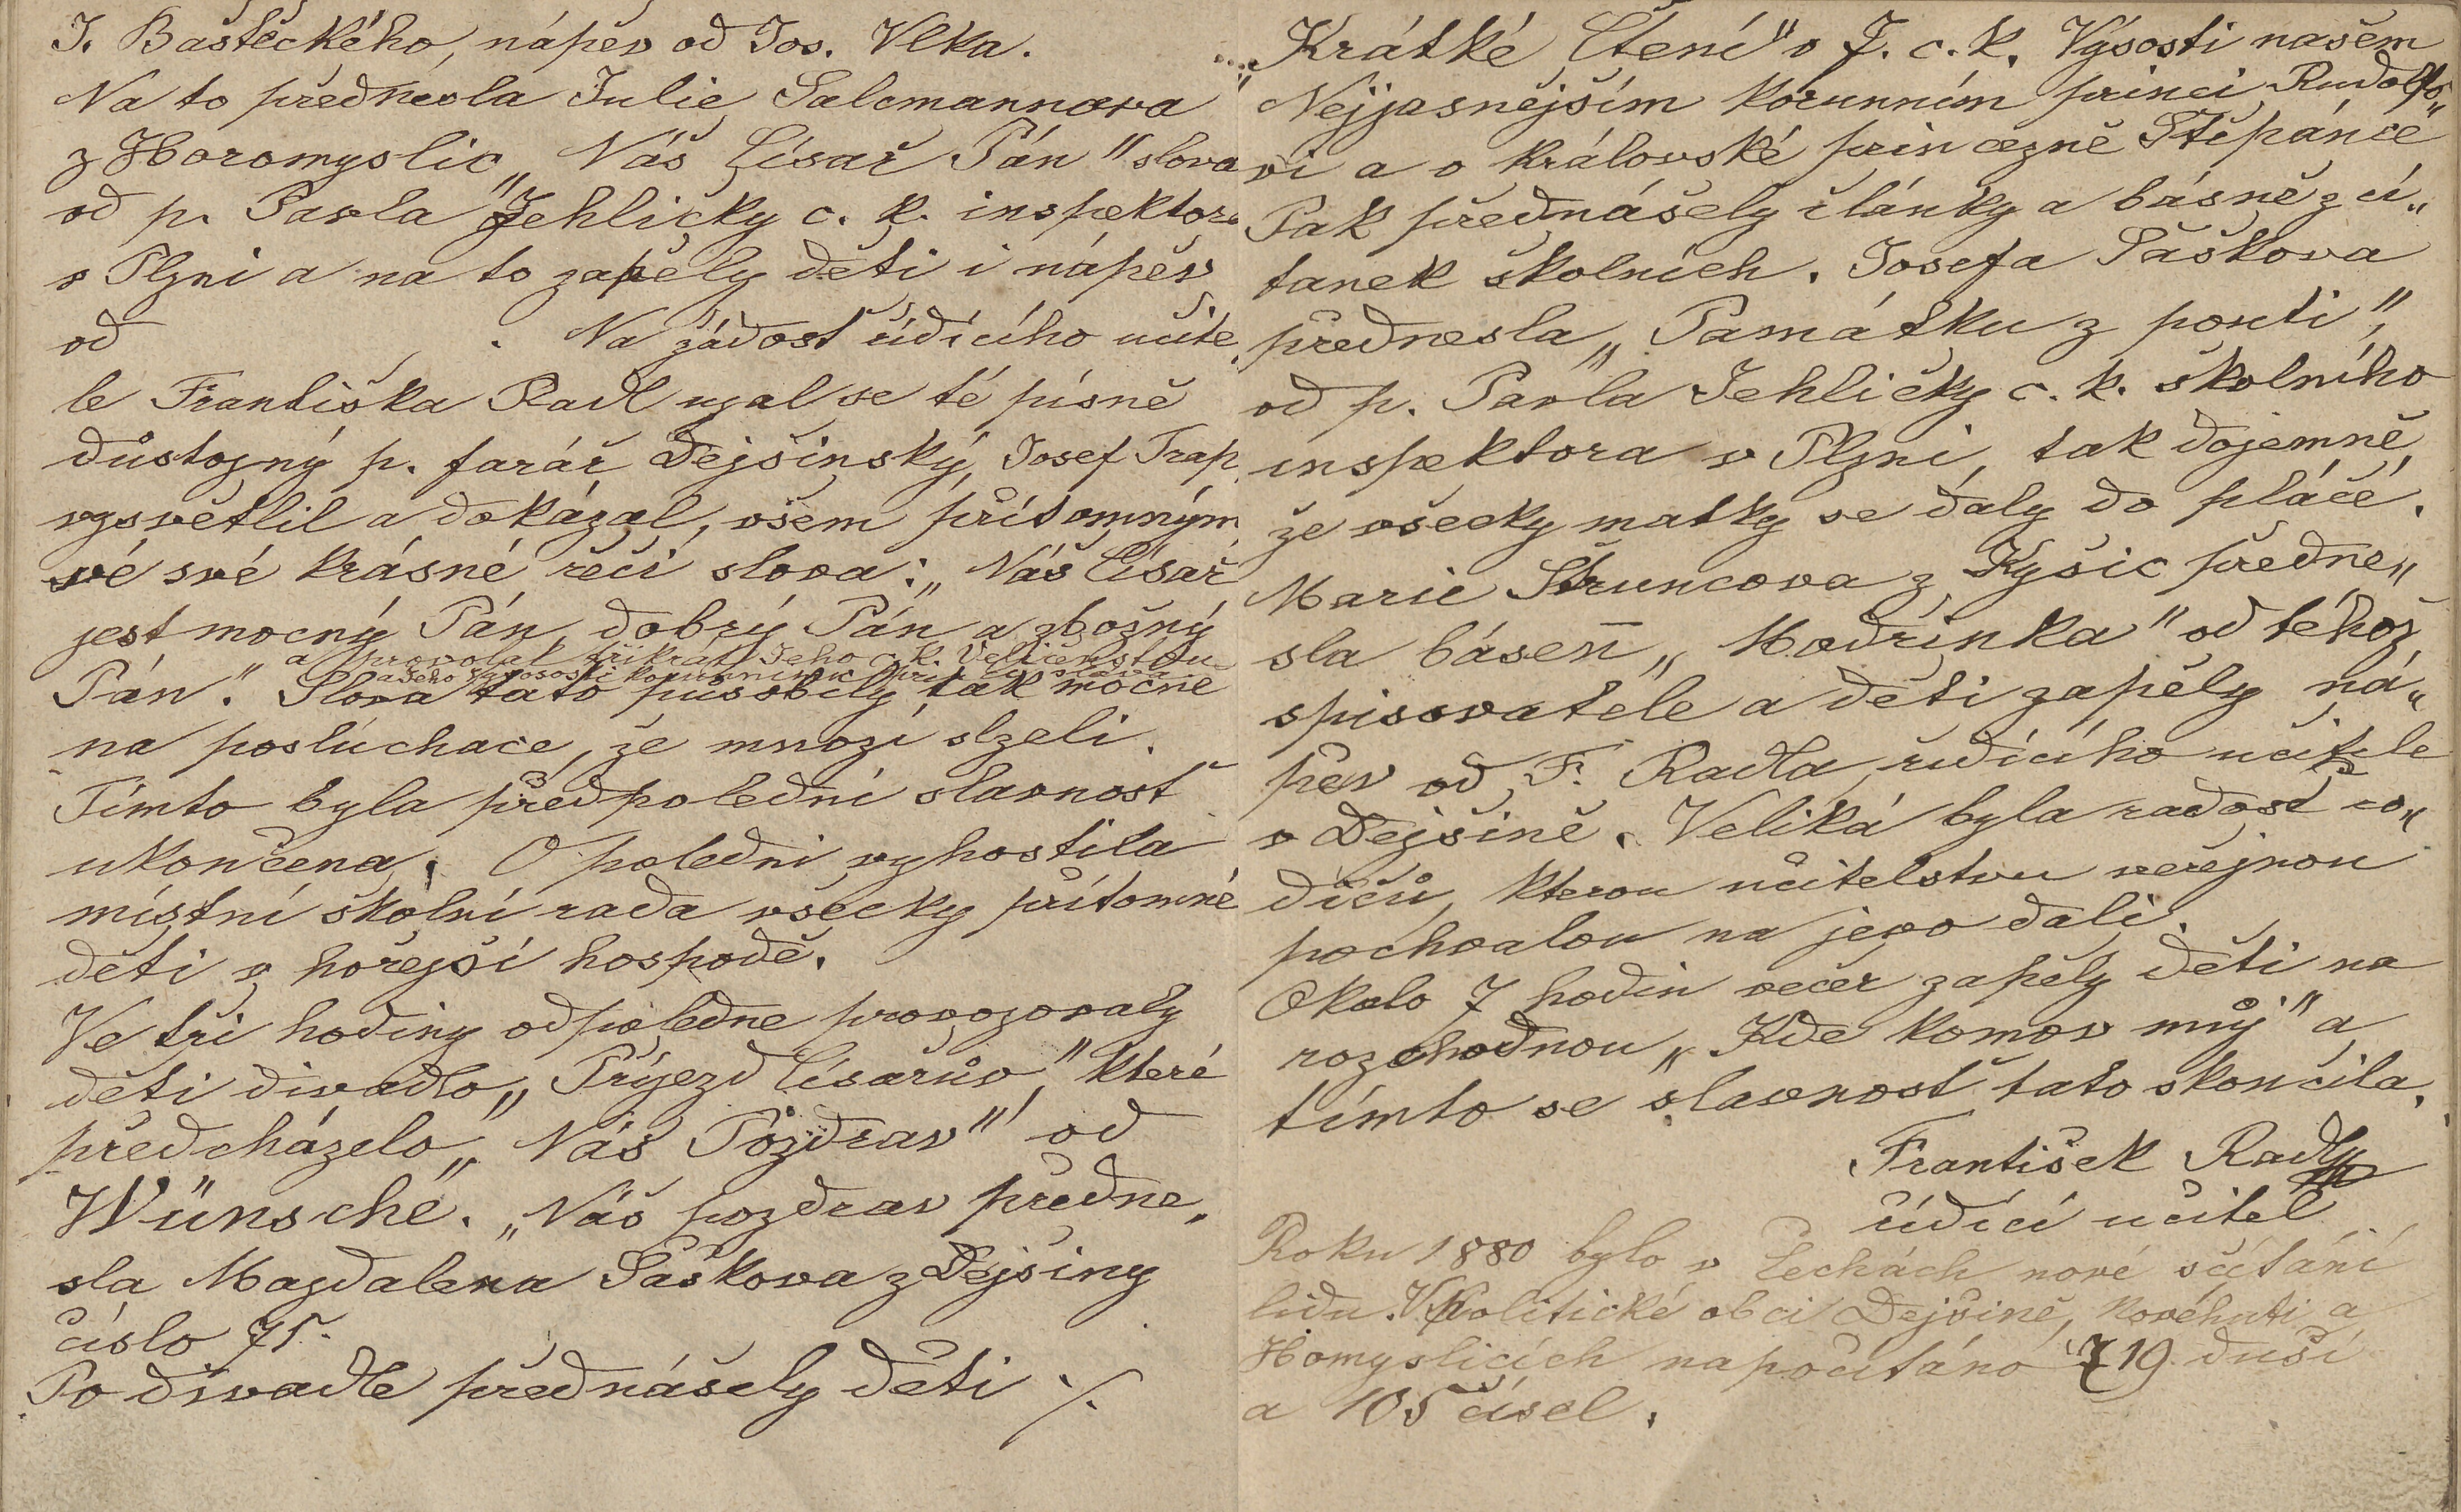 J. Baštěckého, nápěv od Jos. Vlka.
Na to přednesla Julie Salcmannova
z Horomyslic „Náš Císař Pán" slova
od p. Pavla Jehličky c. k. inspektora
v Plzni a na to zapěly děti i nápěv
od . Na žádosť řídícího učite„
le Františka Radl ujal se té písně
důstojný p. farář Dejšinský, Josef Trap,
vysvětlil a dokázal, všem přítomným
vé své krásné řeči slova: „Náš Císař
jest mocný Pán, dobrý Pán a zbožný
a provolal třikrát Jeho c. k. Veličenstvu
a Jeho Vysosti korunnímu princi sláva
Pán." Slova tato působily tak mocně
na poslúchače, že mnozí slzeli.
Tímto byla předpolední slavnosť
ukončena. O poledni vyhostila
místní školní rada všecky přítomné
děti v hořejší hospodě.
Ve tři hodiny odpoledne provozovaly
děti divadlo „Příjezd Císařův", které
předcházelo „Náš Pozdrav" od
Wünsche. „Náš pozdrav předne„
sla Magdalena Šaškova z Dejšiny
číslo 75.
Po divadle přednášely děti ·/.
„Krátké Čtení" o J. c. k. Výsosti našem
Nejjasnějším korunním princi Rudolfo„
vi a o královské princezně Štěpánce
Pak přednášely články a básně z čí„
tanek školních. Josefa Šaškova
přednesla „Památku z pouti",
od p. Pavla Jehličky c. k. školního
inspektora v Plzni, tak dojemně,
že všecky matky se daly do pláče.
Marie Štruncova z Kyšic předne„
sla báseň „Modřinka" od téhož
spisovatele a děti zapěly ná„
pěv od F. Radla, řídícího učitele
v Dejšině. Veliká byla radosť ro„
dičů, kterou učitelstvu veřejnou
pochvalou na jevo dali.
Okolo 7 hodin večer zapěly děti na
rozchodnou „Kde komov můj" a
tímto se slavnosť tato skončila.
František Radl
řídící učitel
Roku 1880 bylo v Čechách nové sčítání
lidu. V politické obci Dejšině, Kovčhuti a
Homyslicích napočítáno 719 duší
a 105 čísel.